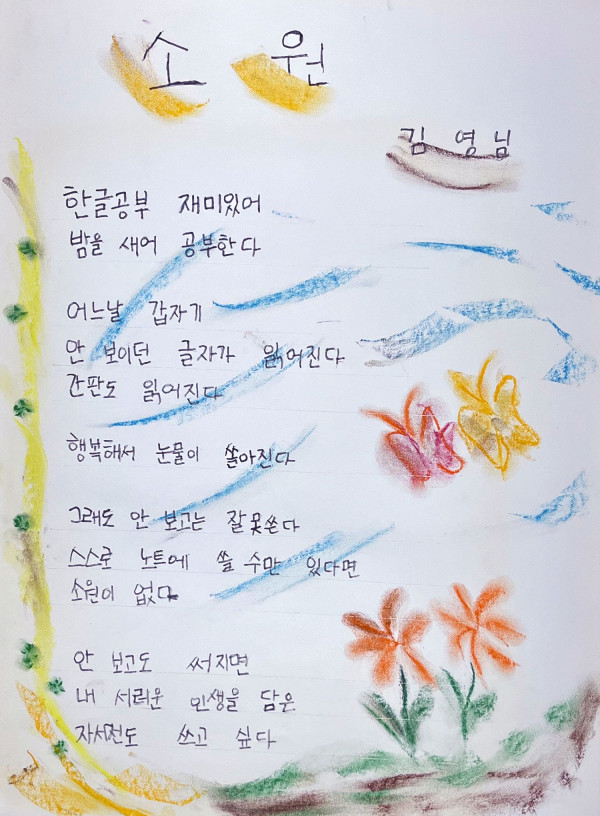 소 원
김 영 님
한글공부 재미있어
밤을 새어 공부한다
어느날 갑자기
안 보이던 글자가 읽어진다
간판도 읽어진다
행복해서 눈물이 쏟아진다
그래도 안 보고는 잘못쓴다
스스로 노트에 쓸 수만 있다면
소원이 없다
안 보고도 써지면
내 서러운 인생을 담은
자서전도 쓰고 싶다